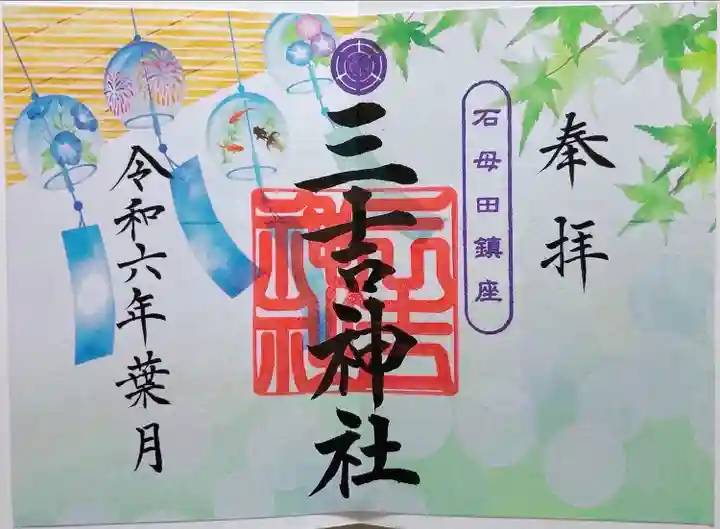 奉拝
石母田鎮座
三吉神社
令和六年葉月